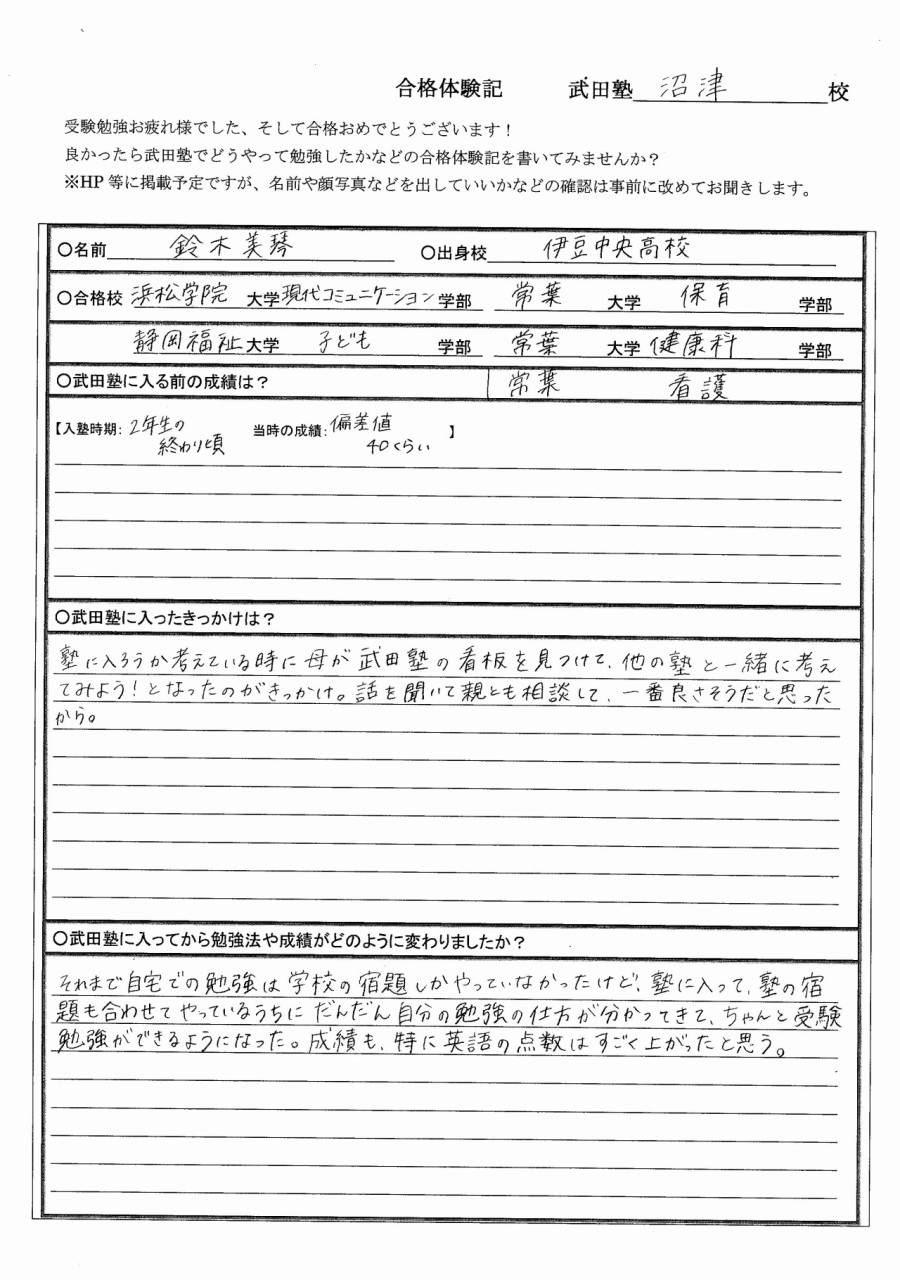 合格体験記　武田塾 沼津 校
受験勉強お疲れ様でした、そして合格おめでとうございます！
良かったら武田塾でどうやって勉強したかなどの合格体験記を書いてみませんか？
※HP 等に掲載予定ですが、名前や顔写真などを出していいかなどの確認は事前に改めてお聞きします。
〇名前 鈴木美琴　〇出身校 伊豆中央高校
〇合格校 浜松学院 大学 現代コミュニケーション 学部　常葉 大学 保育 学部
静岡福祉 大学 子ども 学部　常葉 大学 健康科 学部
〇武田塾に入る前の成績は？　常葉　看護
【入塾時期: 2年生の　当時の成績: 偏差値　】
終わり頃　40くらい
〇武田塾に入ったきっかけは？
塾に入ろうか考えている時に母が武田塾の看板を見つけて、他の塾と一緒に考え
てみよう！となったのがきっかけ。話を聞いて親とも相談して、一番良さそうだと思った
から。
〇武田塾に入ってから勉強法や成績がどのように変わりましたか？
それまで自宅での勉強は学校の宿題しかやっていなかったけど、塾に入って、塾の宿
題も合わせてやっているうちにだんだん自分の勉強の仕方が分かってきて、ちゃんと受験
勉強ができるようになった。成績も、特に英語の点数はすごく上がったと思う。